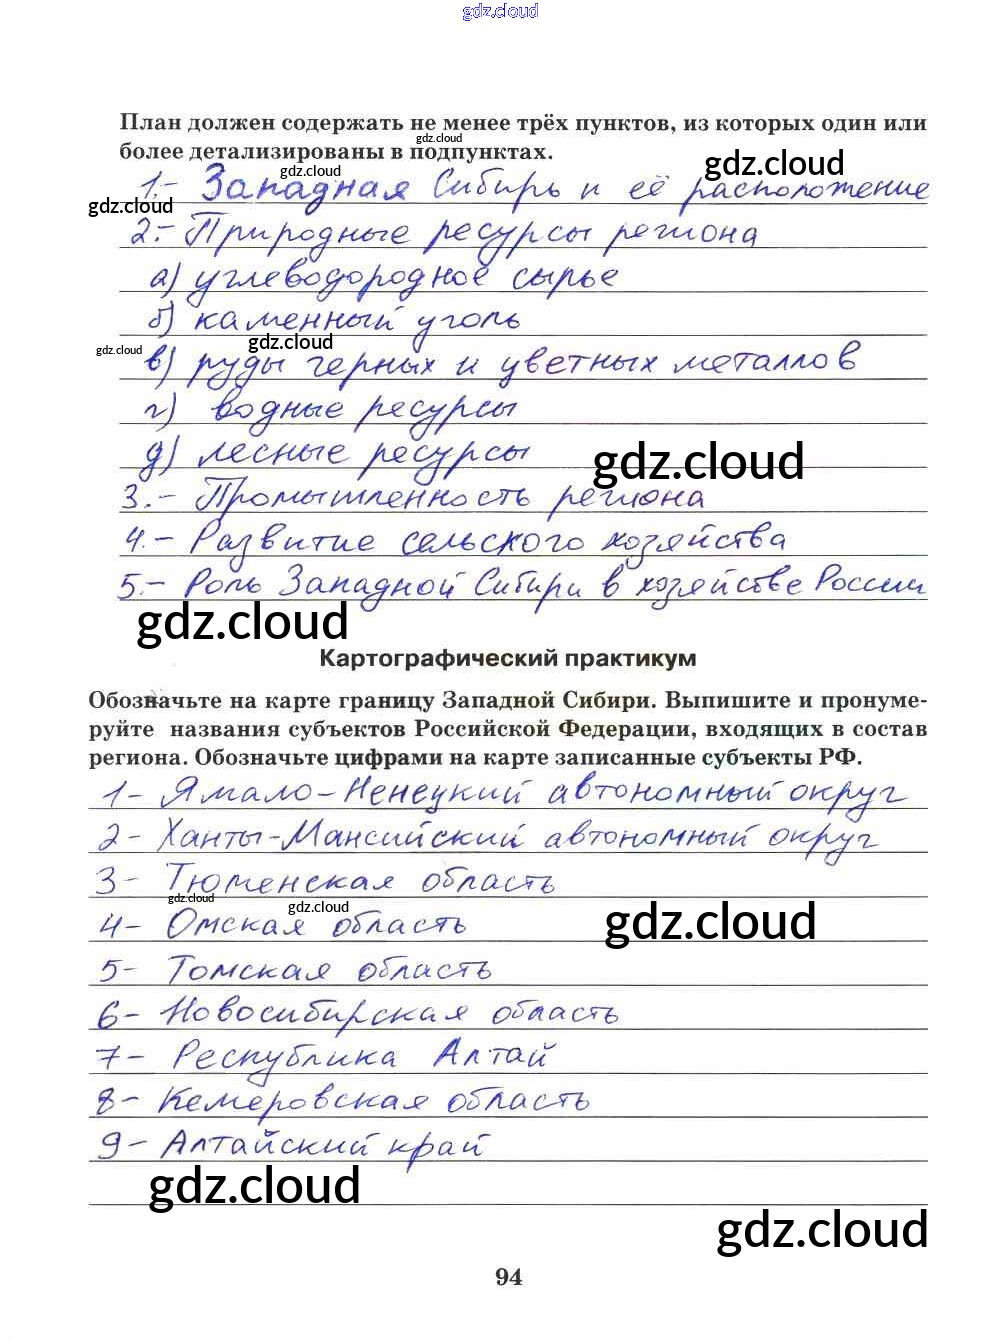 gdz.cloud
План должен содержать не менее трёх пунктов, из которых один или
gdz.cloud
более детализированы в подпунктах.
gdz.cloud
gdz.cloud
1.- Западная Сибирь и её расположение
gdz.cloud
2.- Природные ресурсы региона
а) углеводородное сырье
б) каменный уголь
gdz.cloud
gdz.cloud
в) руды черных и цветных металлов
г) водные ресурсы
д) лесные ресурсы
gdz.cloud
3.- Промышленность региона
4.- Развитие сельского хозяйства
5.- Роль Западной Сибири в хозяйстве России
gdz.cloud
Картографический практикум
Обозначьте на карте границу Западной Сибири. Выпишите и пронуме-
руйте названия субъектов Российской Федерации, входящих в состав
региона. Обозначьте цифрами на карте записанные субъекты РФ.
1- Ямало-Ненецкий автономный округ
2- Ханты-Мансийский автономный округ
3- Тюменская область
gdz.cloud
gdz.cloud
gdz.cloud
4- Омская область
5- Томская область
6- Новосибирская область
7- Республика Алтай
8- Кемеровская область
9- Алтайский край
gdz.cloud
gdz.cloud
94